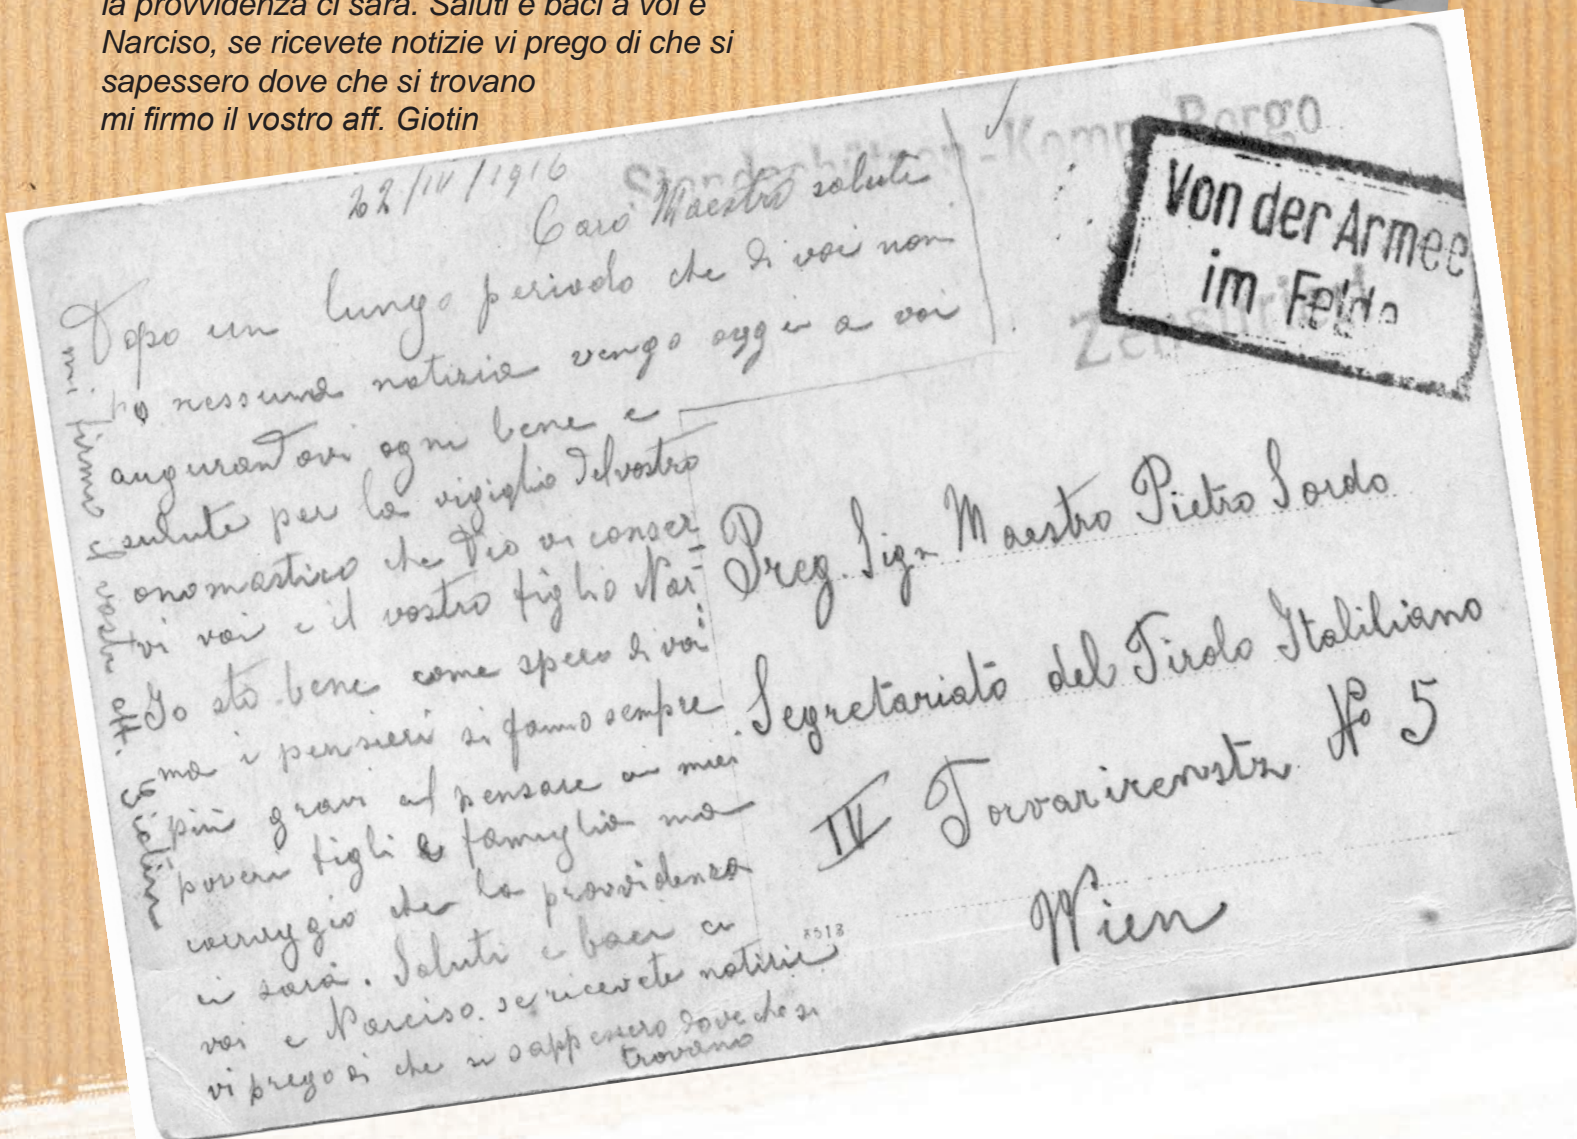 la provvidenza ci sarà. Saluti e baci a voi e
Narciso, se ricevete notizie vi prego di che si
sapessero dove che si trovano
mi firmo il vostro aff. Giotin
22/IV/1916
Standschützen-Komp. Borgo
Caro Maestro salute
Dopo un lungo periodo che di voi non
ho nessuna notizia vengo oggi a voi
augurandovi ogni bene e
salute per la vigiglia del vostro
onomastico che Dio vi conser
vi voi e il vostro figlio Nar:
Io sto bene come spero di voi
ma i pensieri si fanno sempre
più gravi al pensare ai miei
poveri figli e famiglia ma
corraggio che la provvidenza
ci sarà. Saluti e baci a
voi e Narciso. se ricevete notizie
vi prego di che si sappessero dove che si
trovano
mi firmo il vostro aff. Giotin
Von der Armee
im Felde
Zensuriert
Preg. Sign Maestro Pietro Sordo
Segretariato del Tirolo Italiliano
IV Nº 5
Wien
8518